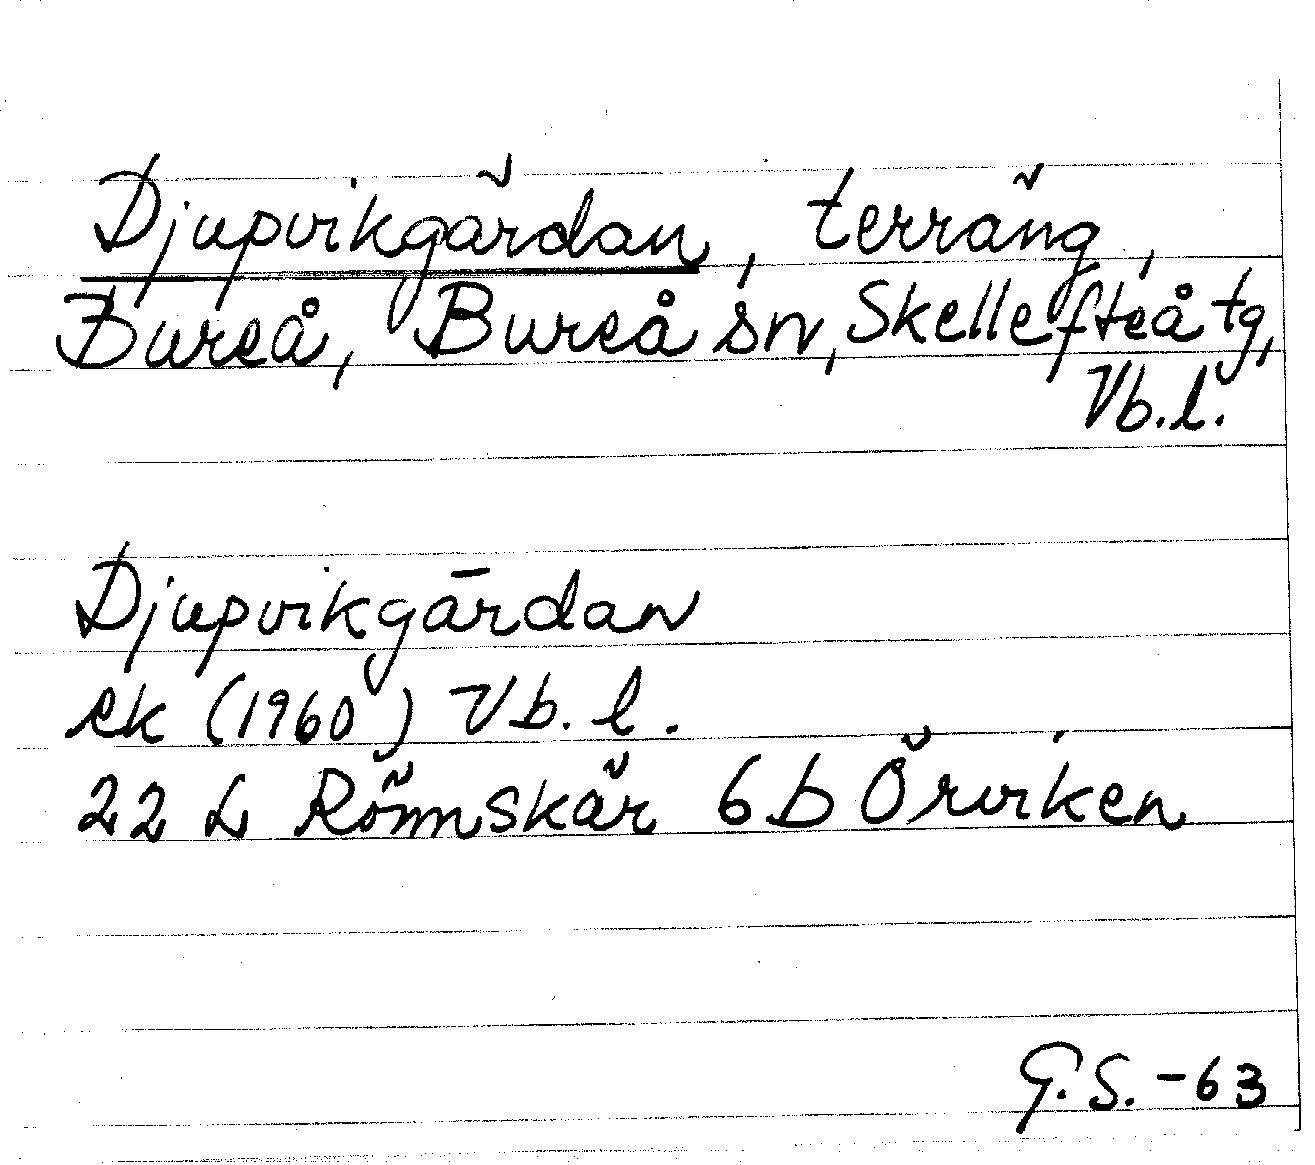 Djupvikgärdan, terräng,
Bureå, Bureå sn, Skellefteå tg,
Vb.l.
Djupvikgärdan
ek (1960) Vb. l.
22 L Rönnskär 6 b Örviken
G.S. -63